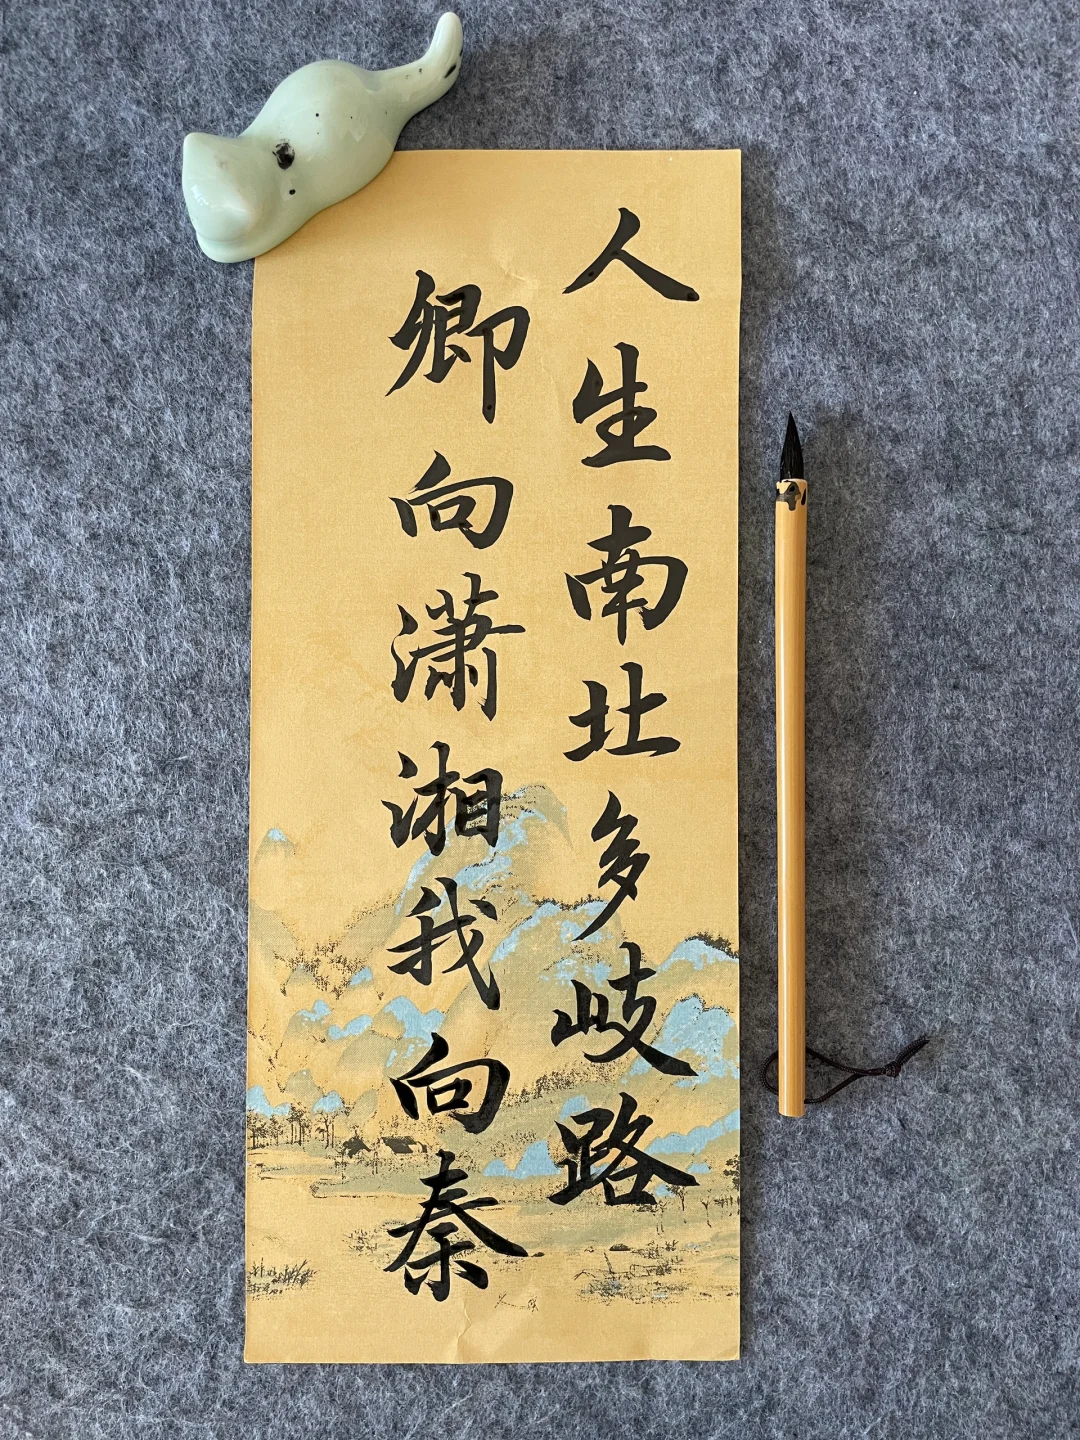 人生南北多歧路
卿向潇湘我向秦